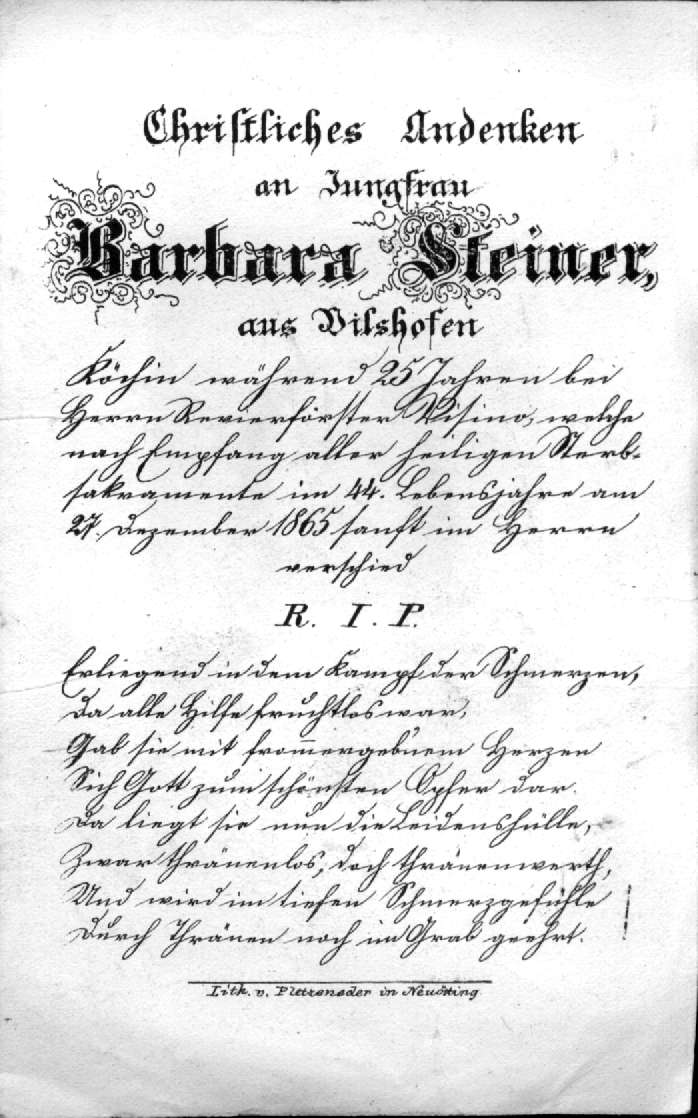 Christliches Andenken
an Jungfrau
Barbara Steiner,
aus Vilshofen
Köchin während 25 Jahren bei
Herrn Revierförster Visino, welche
nach Empfang aller heiligen Sterb-
sakramente im 44. Lebensjahre am
27. Dezember 1865 sanft im Herrn
verschied
R. I. P.
Erliegend in dem Kampf der Schmerzen,
Da alle Hilfe fruchtlos war,
Gab sie mit frommergeb'nem Herzen
Sich Gott zum schönsten Opfer dar.
Da liegt sie nun die Leidenshülle,
Zwar thränenlos, doch thränenwerth,
Und wird im tiefen Schmerzgefühle
Durch Thränen noch im Grab geehrt.
Lith. v. Plettzeneder in Neuötting